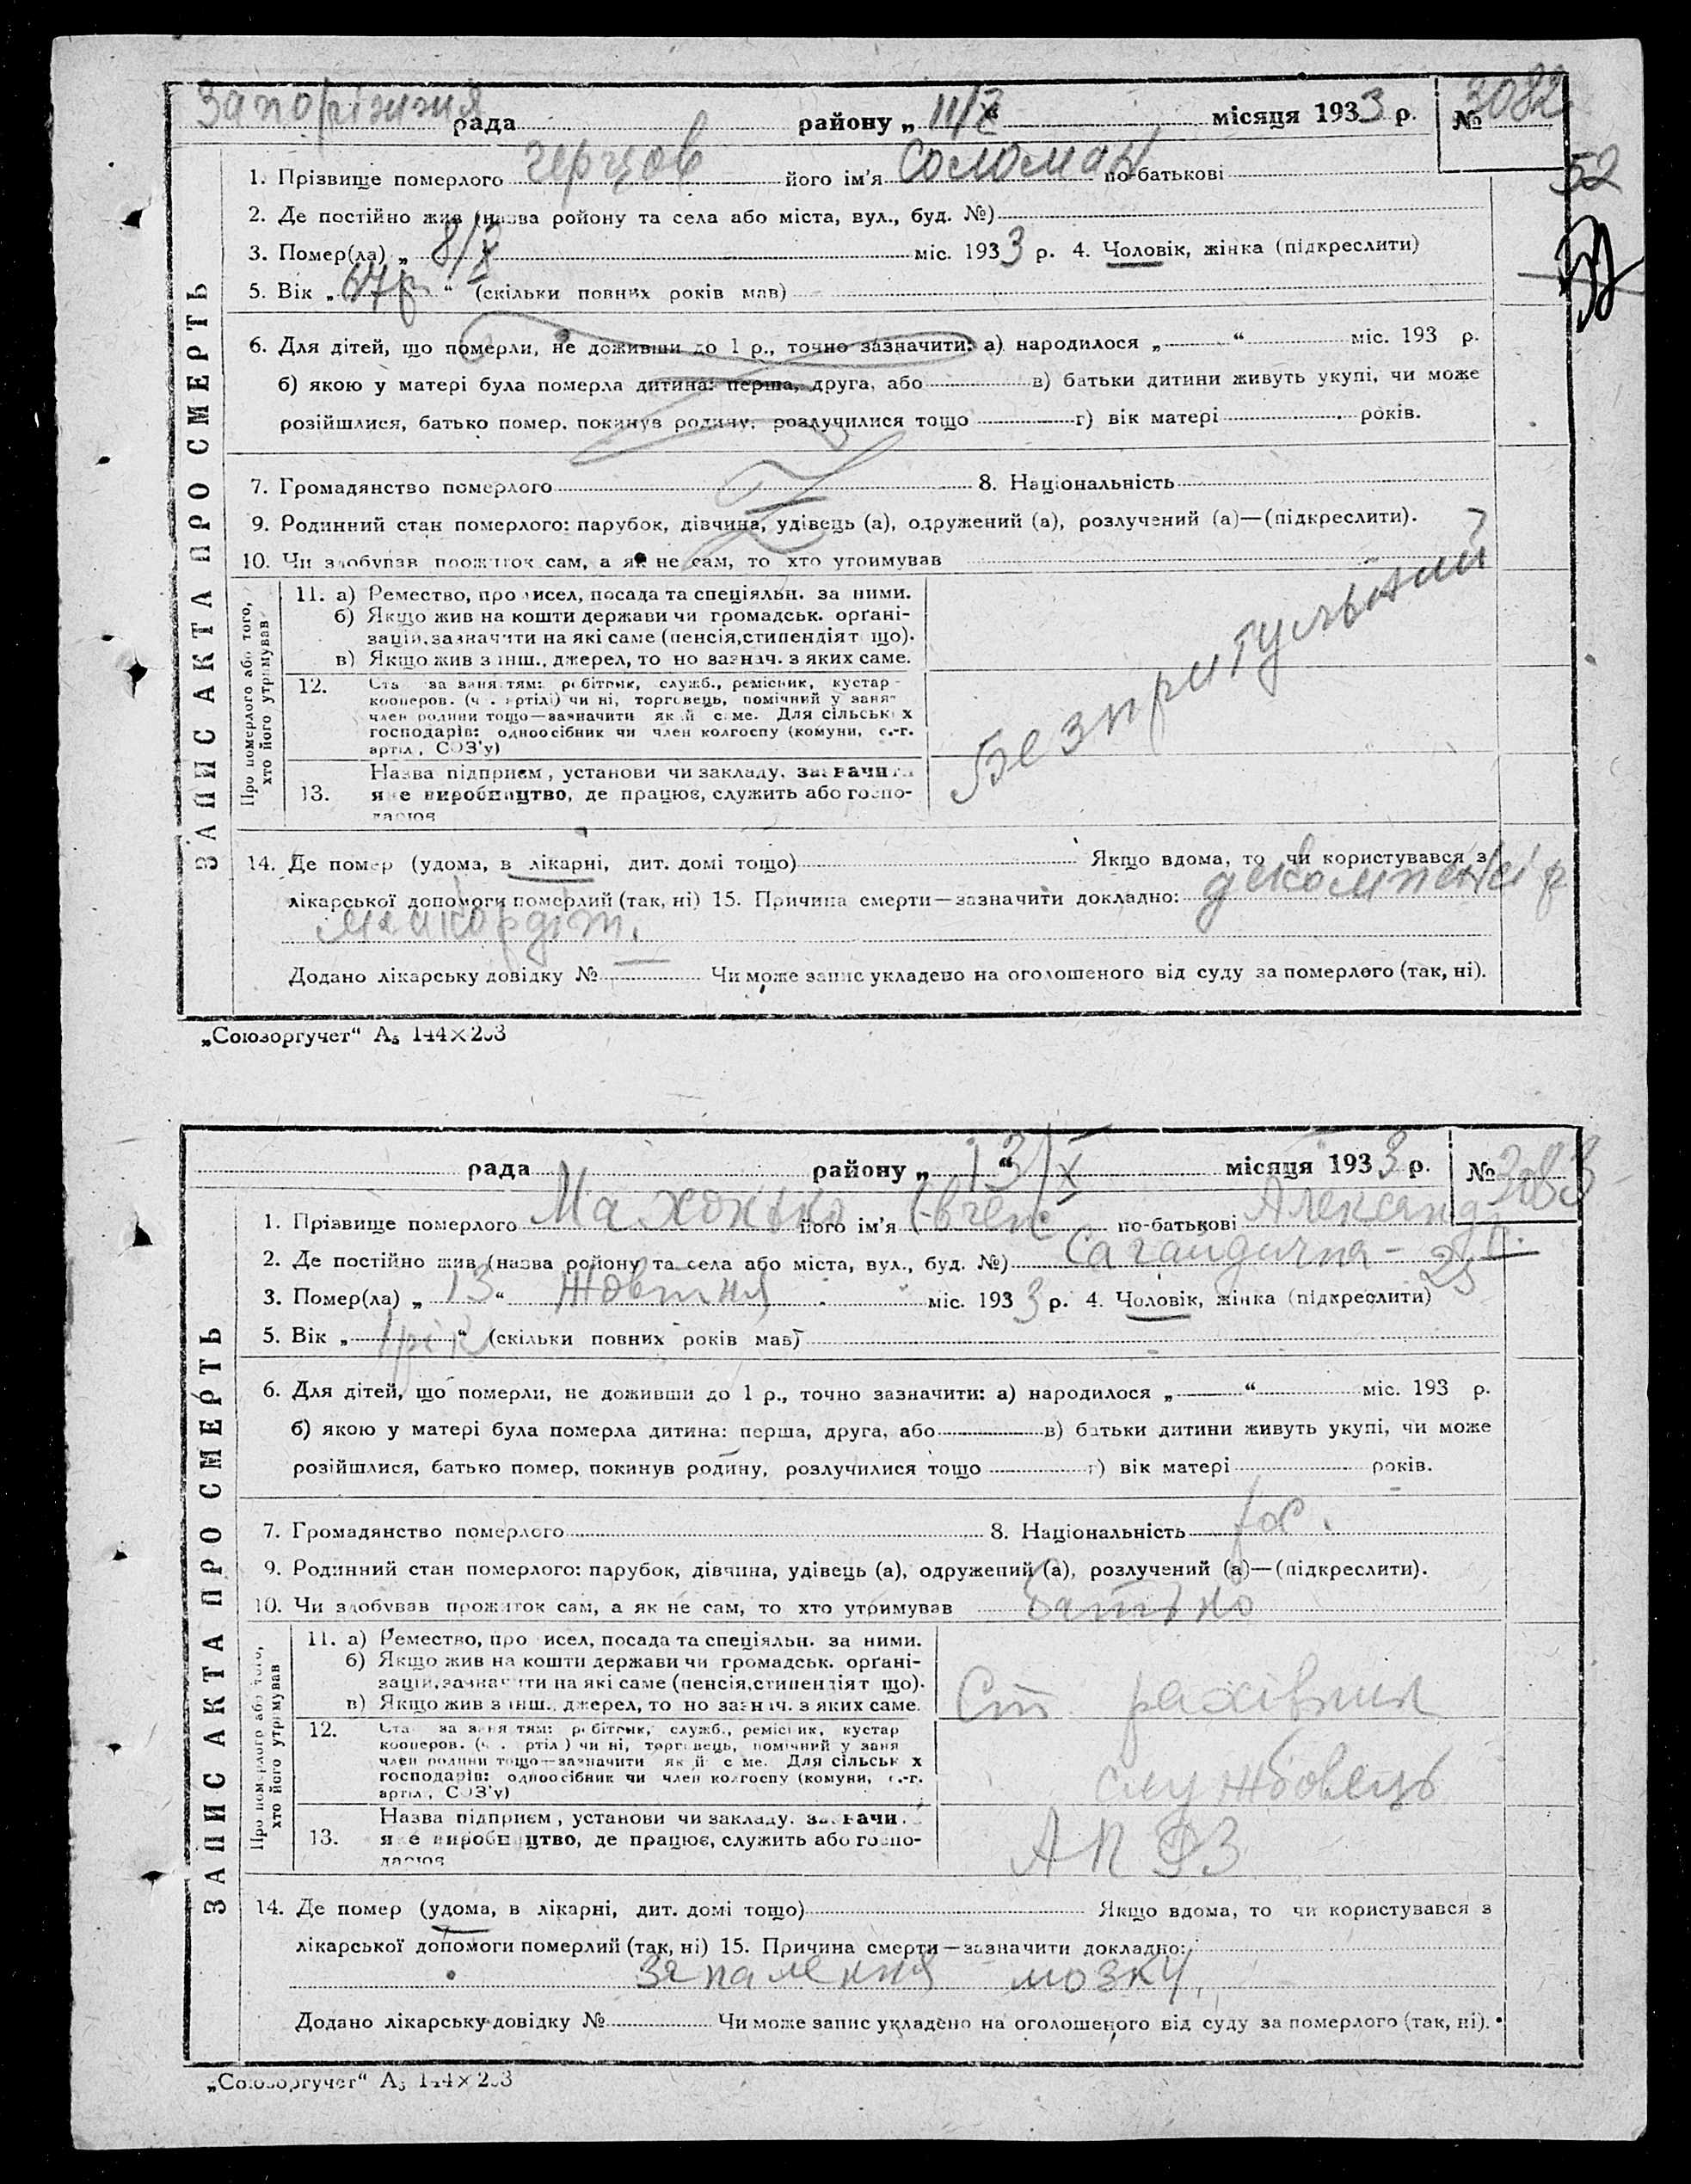 Запоріжжя рада району „ 11/X “ місяця 1933 р. № 3082
52
1. Прізвище померлого Герцов його ім'я Соломан по-батькові
2. Де постійно жив (назва району та села або міста, вул., буд. №)
3. Помер(ла) „ 8/X міс. 1933 р. 4. Чоловік, жінка (підкреслити)
5. Вік „ 67 р “ (скільки повних років мав)
6. Для дітей, що померли, не доживши до 1 р., точно зазначити: а) народилося „ “ міс. 193 р.
б) якою у матері була померла дитина: перша, друга, або в) батьки дитини живуть укупі, чи може
розійшлися, батько помер, покинув родину, розлучилися тощо г) вік матері років.
7. Громадянство померлого 8. Національність
9. Родинний стан померлого: парубок, дівчина, удівець (а), одружений (а), розлучений (а)—(підкреслити).
10. Чи здобував прожиток сам, а як не сам, то хто утримував
ЗАПИС АКТА ПРО СМЕРТЬ
Про померлого або того,
хто його утримував
11. а) Ремество, промисел, посада та спеціяльн. за ними.
б) Якщо жив на кошти держави чи громадськ. органі-
зацій, зазначити на які саме (пенсія, стипендіят що).
в) Якщо жив з інш. джерел, то но зазнач. з яких саме.
Безпритульний
12. Ста за заняттям: робітник, служб., ремісник, кустар-
кооперов. (ч . артілі) чи ні, торговець, помічний у заня-
член родини тощо—зазначити який саме. Для сільськ х
господарів: одноосібник чи член колгоспу (комуни, с.-г.
артіл, СОЗ'у)
13. Назва підприєм, установи чи закладу, зазначити
яке виробництво, де працює, служить або госпо-
дарює
14. Де помер (удома, в лікарні, дит. домі тощо) Якщо вдома, то чи користувався з
лікарської допомоги померлий (так, ні) 15. Причина смерти—зазначити докладно:
Додано лікарську довідку № Чи може запис укладено на оголошеного від суду за померлого (так, ні).
„Союзоргучет“ А₅ 144×203
рада району „ 13/X “ місяця 1933 р. № 3083
1. Прізвище померлого Махонько його ім'я Євген по-батькові Александр.
2. Де постійно жив (назва району та села або міста, вул., буд. №)
3. Помер(ла) „ 13 “ Жовтня міс. 1933 р. 4. Чоловік, жінка (підкреслити)
5. Вік „ 1 рік “ (скільки повних років мав)
6. Для дітей, що померли, не доживши до 1 р., точно зазначити: а) народилося „ “ міс. 193 р.
б) якою у матері була померла дитина: перша, друга, або в) батьки дитини живуть укупі, чи може
розійшлися, батько помер, покинув родину, розлучилися тощо г) вік матері років.
7. Громадянство померлого 8. Національність рос.
9. Родинний стан померлого: парубок, дівчина, удівець (а), одружений (а), розлучений (а)—(підкреслити).
10. Чи здобував прожиток сам, а як не сам, то хто утримував батько
ЗАПИС АКТА ПРО СМЕРТЬ
Про померлого або того,
хто його утримував
11. а) Ремество, промисел, посада та спеціяльн. за ними.
б) Якщо жив на кошти держави чи громадськ. органі-
зацій, зазначити на які саме (пенсія, стипендіят що).
в) Якщо жив з інш. джерел, то но зазнач. з яких саме.
Ст. рахівник
12. Ста за заняттям: робітник, служб., ремісник, кустар
кооперов. (ч . артіл ) чи ні, торговець, помічний у заня
член родини тощо—зазначити який саме. Для сільськ х
господарів: одноосібник чи член колгоспу (комуни, с.-г.
артіл, СОЗ'у)
службовець
13. Назва підприєм, установи чи закладу, зазначи
яке виробництво, де працює, служить або госпо-
дарює
14. Де помер (удома, в лікарні, дит. домі тощо) Якщо вдома, то чи користувався з
лікарської допомоги померлий (так, ні) 15. Причина смерти—зазначити докладно:
запалення мозку
Додано лікарську довідку № Чи може запис укладено на оголошеного від суду за померлого (так, ні).
„Союзоргучет“ А₅ 144×203